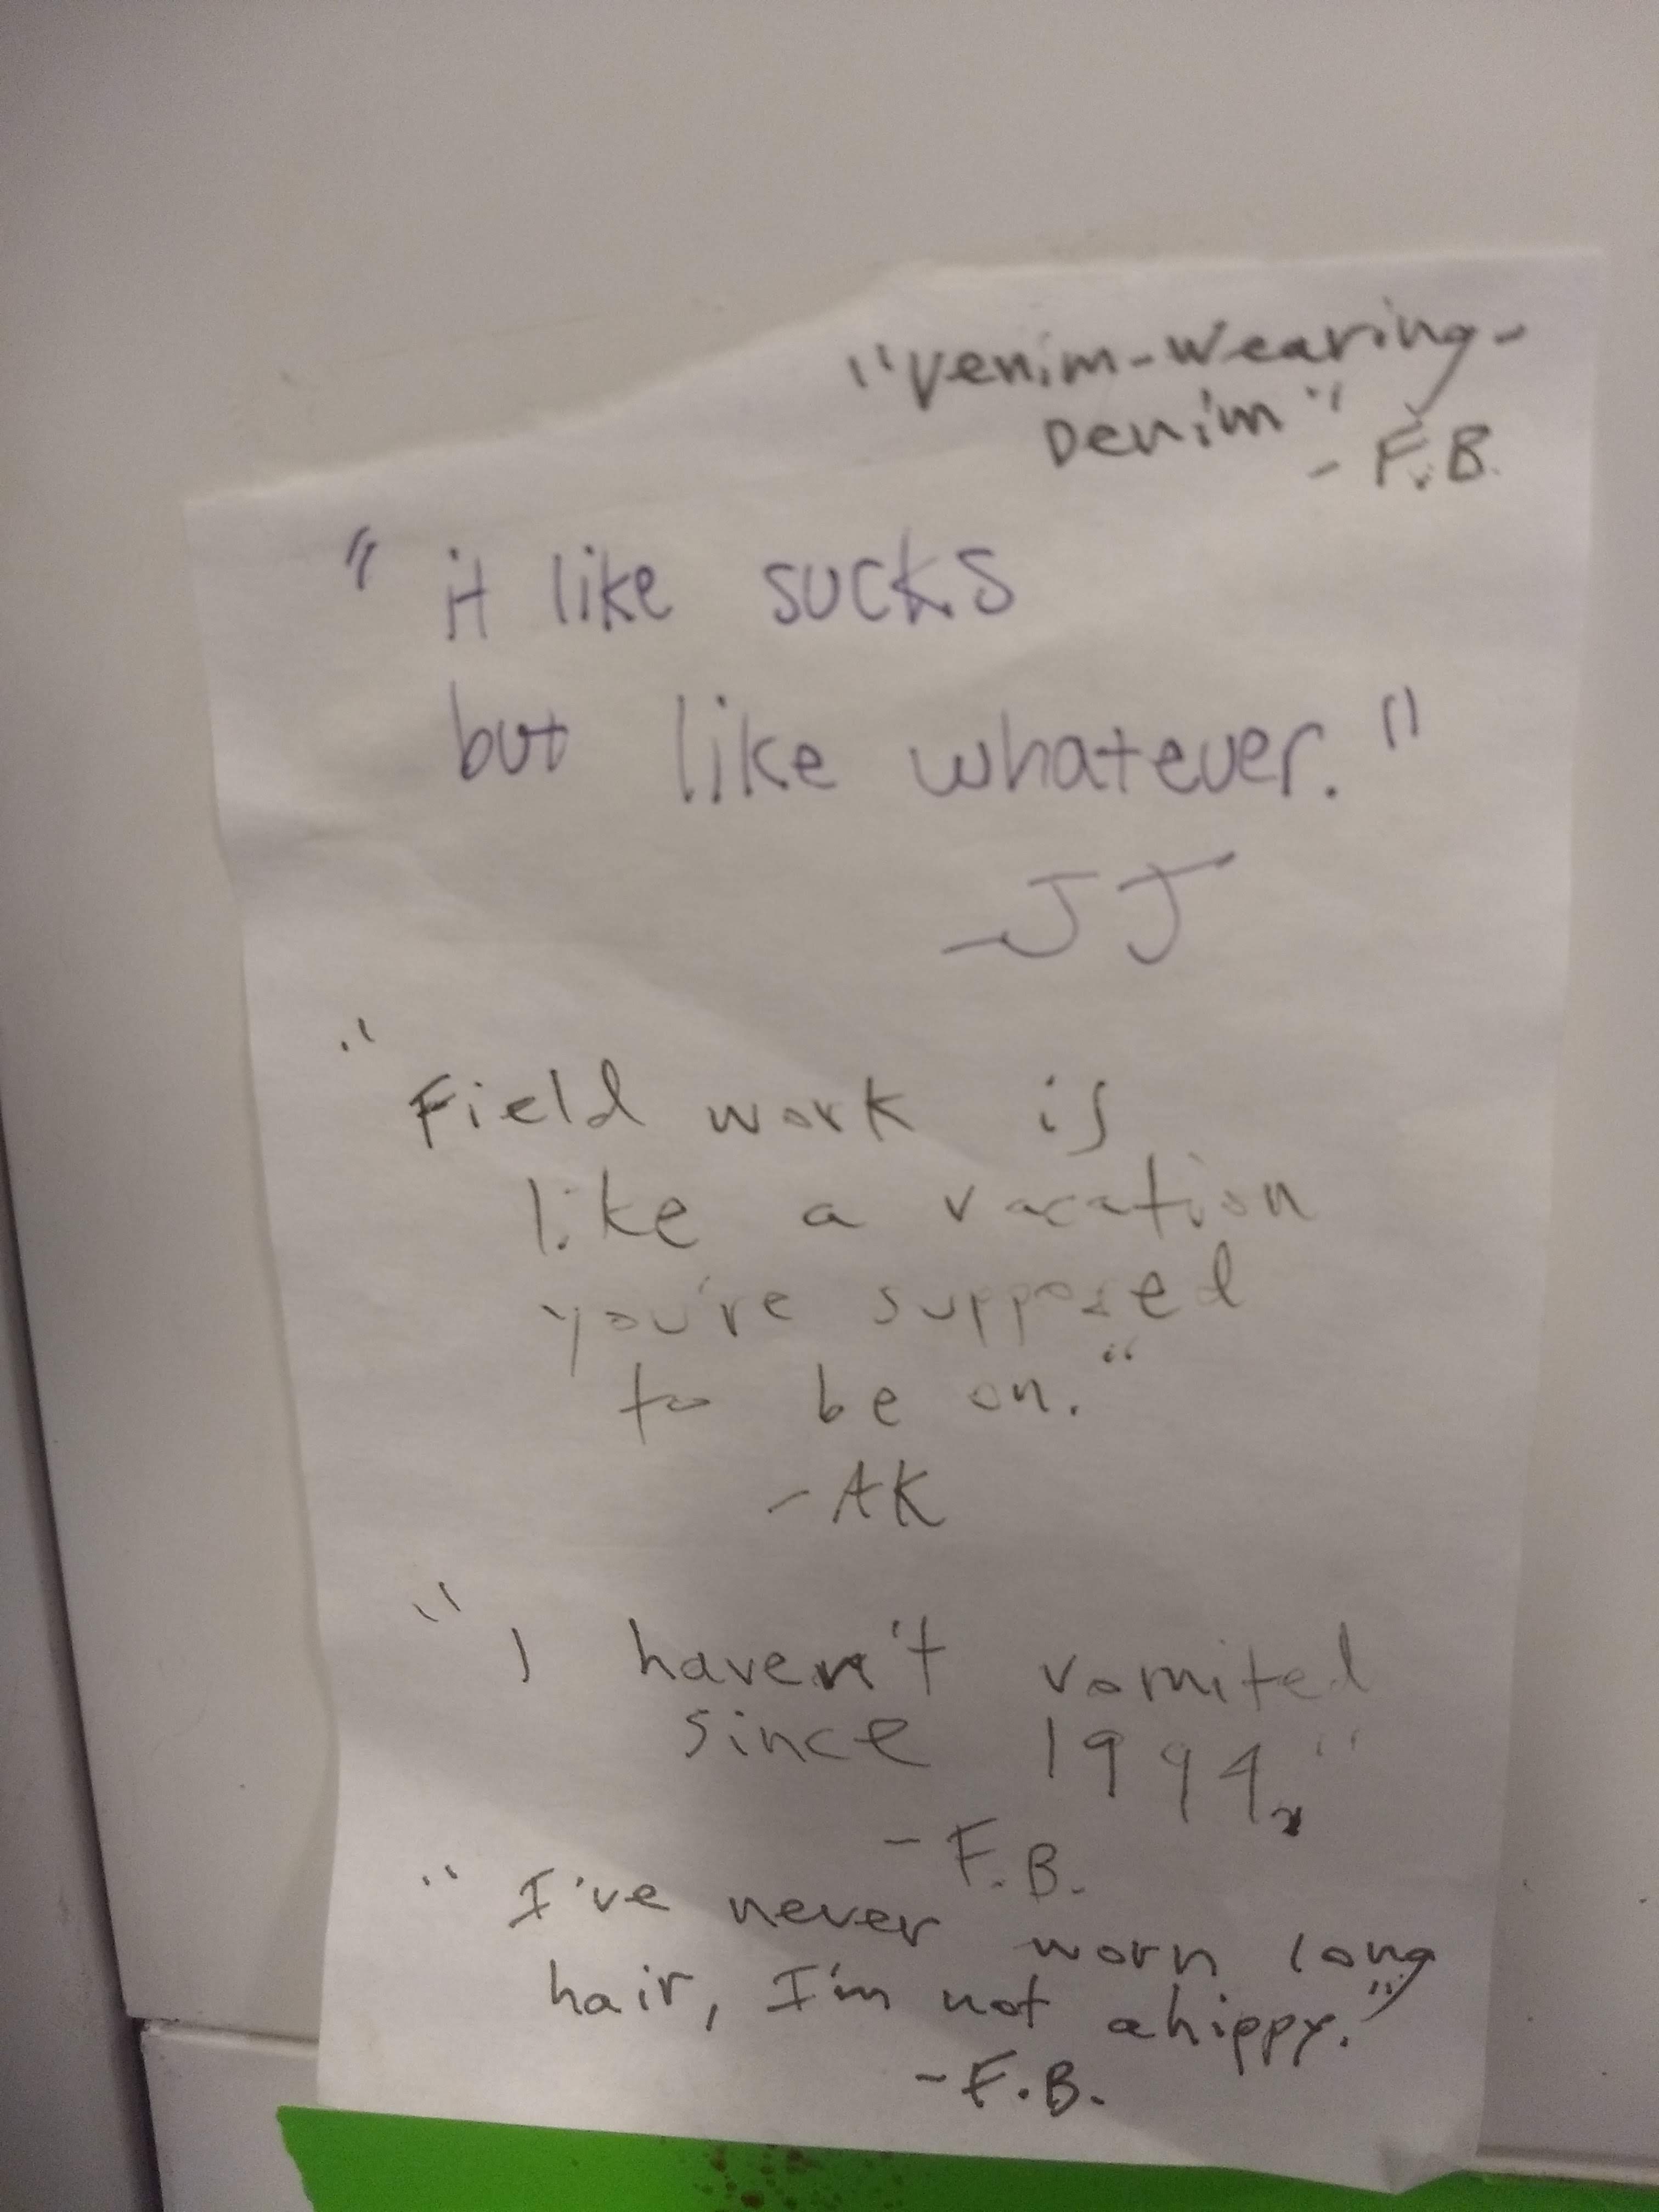 "Venim-Wearing-
Denim"
- F.B.
" it like sucks
but like whatever."
- JJ
"Field work is
like a vacation
you're supposed
to be on."
- AK
"I haven't vomited
since 1994."
- F.B.
"I've never worn long
hair, I'm not a hippy."
- F.B.